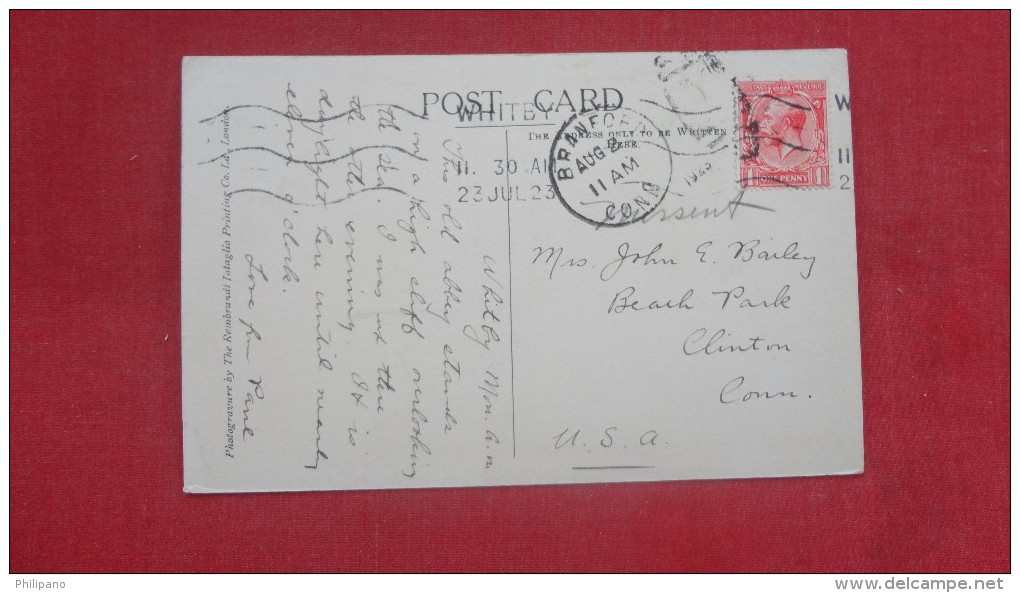 POST CARD
THE ADDRESS ONLY TO BE WRITTEN
HERE.
WHITBY
11. 30 AM
23 JUL 23
BRANFORD
AUG 2
11 AM
CONN
1923
W
11
2
POSTAGE REVENUE
1 ONE PENNY 1
Mrs. John E. Bailey
Beach Park
Clinton
Conn.
U. S. A.
Whitby Mon. a.m.
This old abbey stands
on a high cliff overlooking
the sea. I was out there
the other evening. It is
daylight here until nearly
eleven o'clock.
Love from Paul
Photogravure by The Rembrandt Intaglio Printing Co. Ltd., London.
Philipano
www.delcampe.net